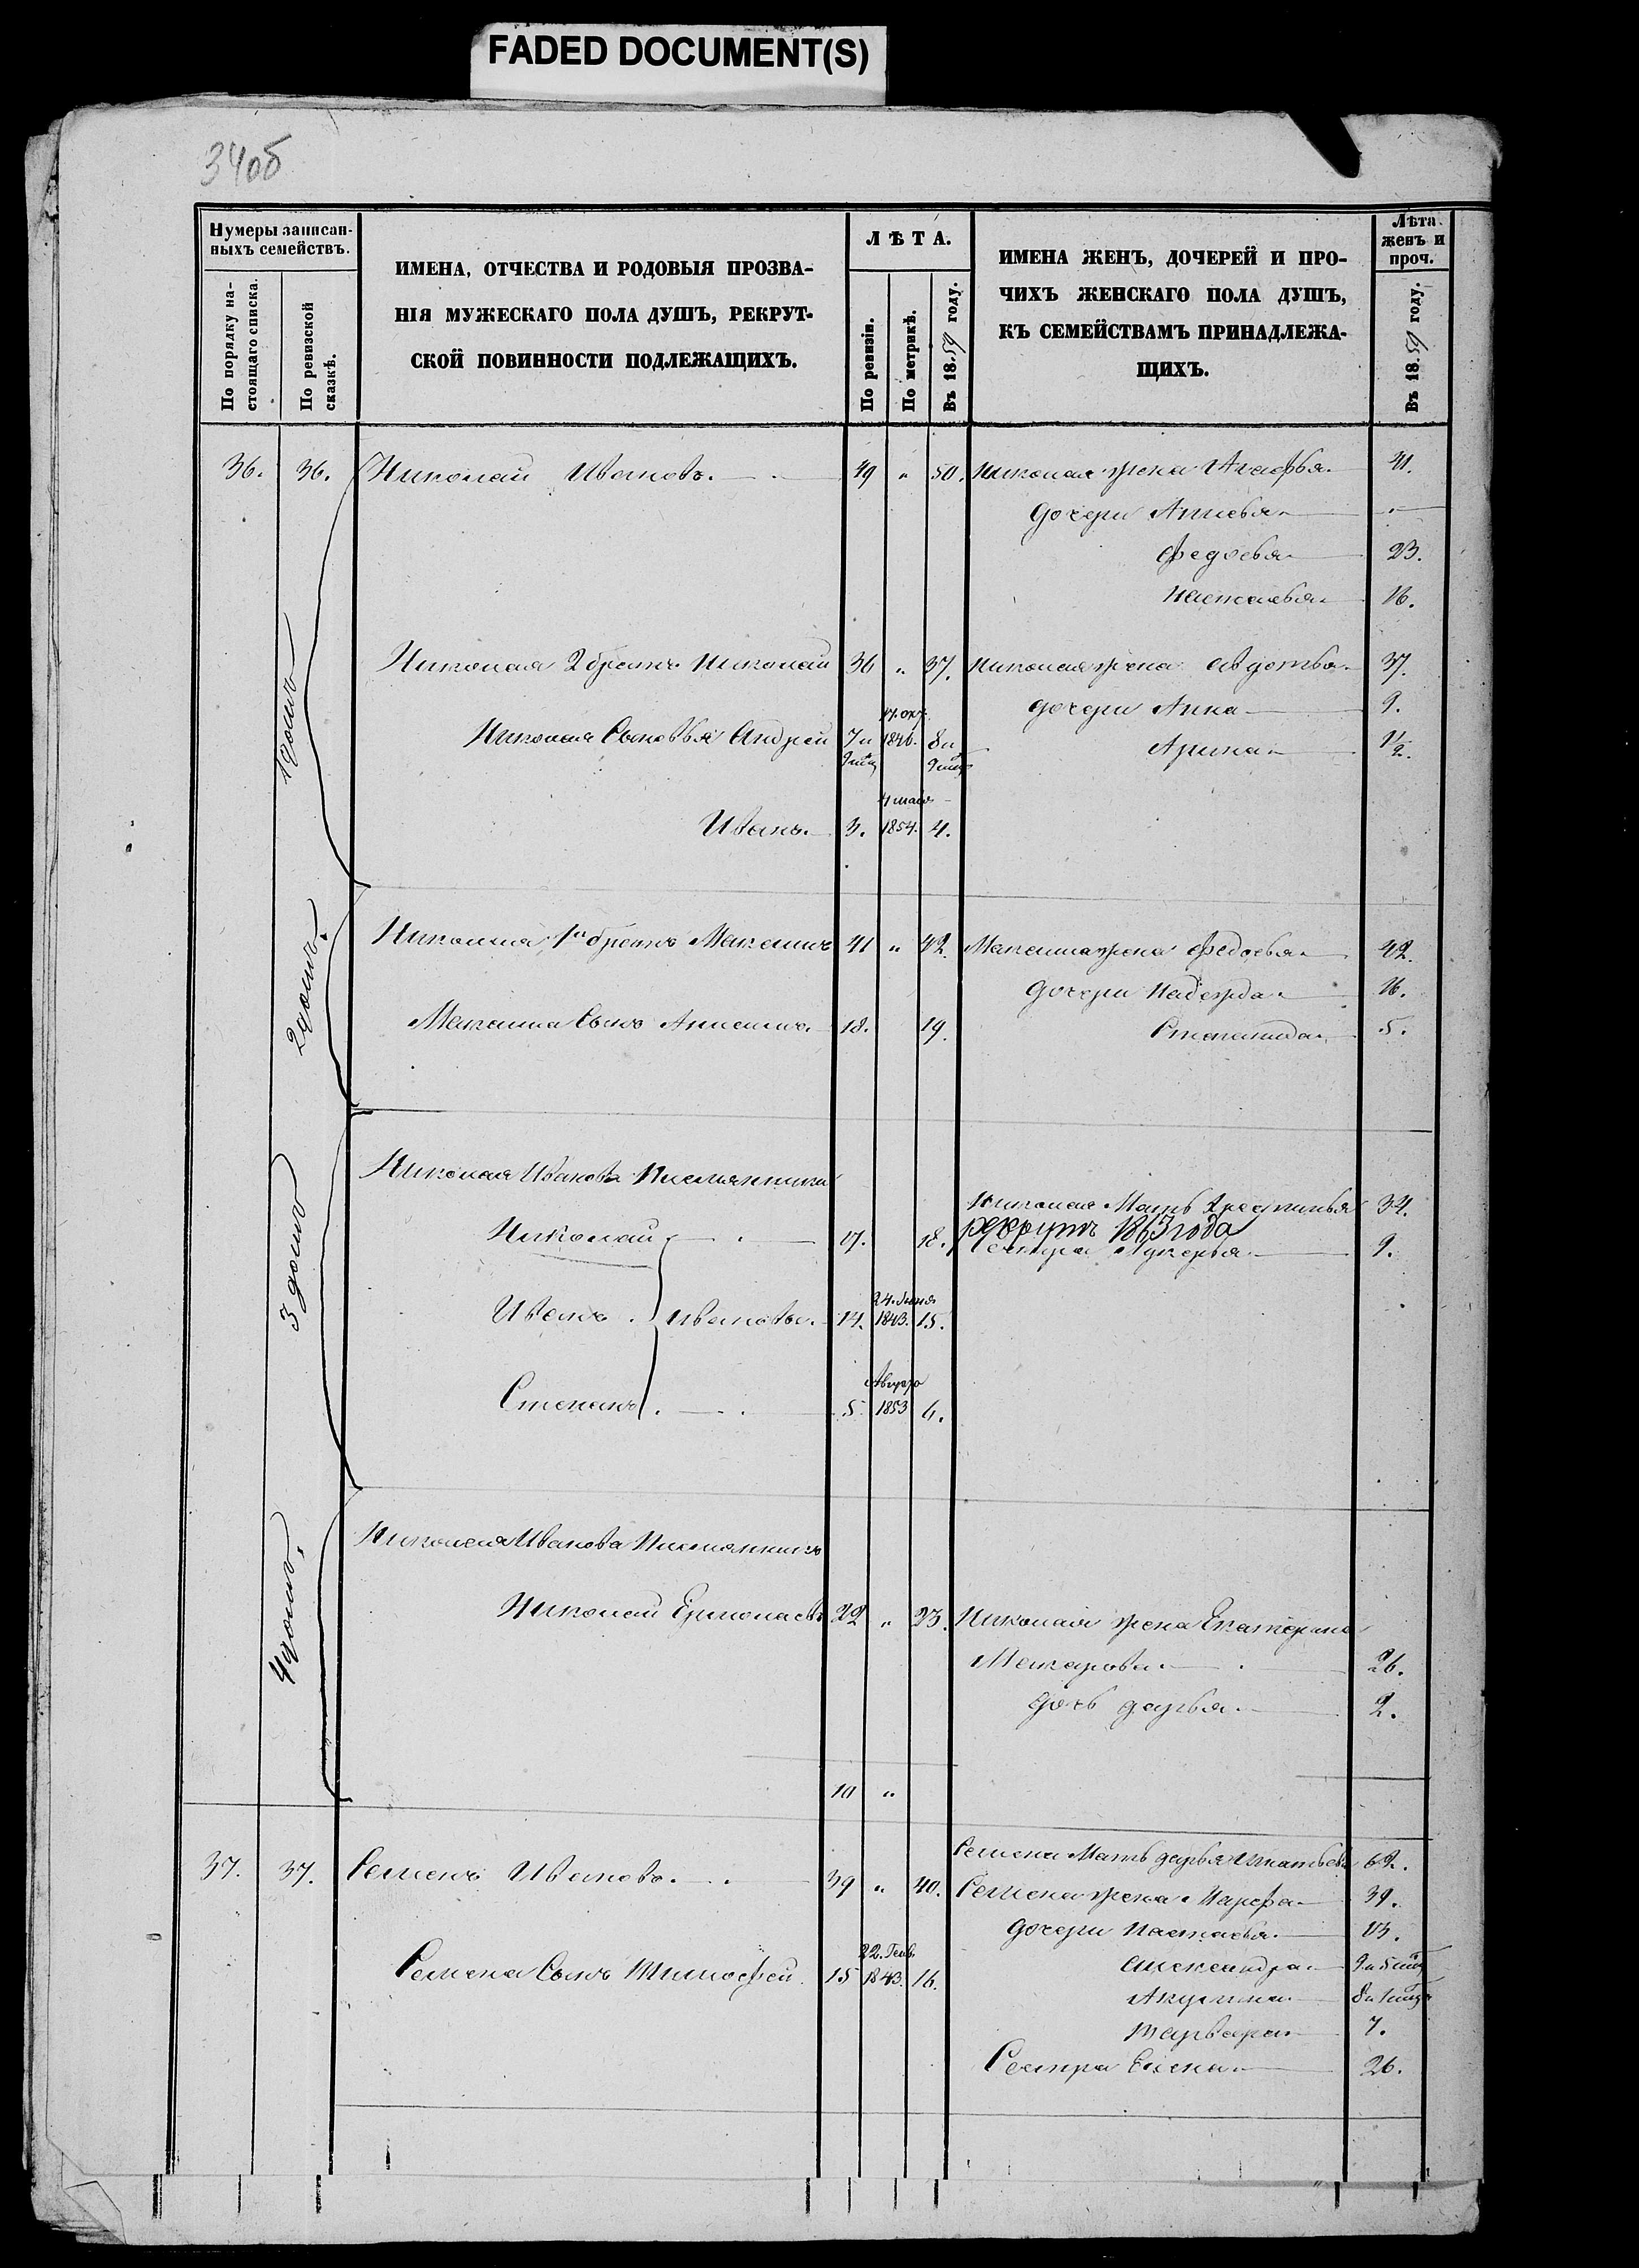 FADED DOCUMENT(S)
34об
Нумеры записан-
ныхъ семействъ.
По порядку на-
стоящаго списка.
По ревизской
сказкѣ.
ИМЕНА, ОТЧЕСТВА И РОДОВЫЯ ПРОЗВА-
НІЯ МУЖЕСКАГО ПОЛА ДУШЪ, РЕКРУТ-
СКОЙ ПОВИННОСТИ ПОДЛЕЖАЩИХЪ.
ЛѢТА.
По ревизіи.
По метрикѣ.
Въ 1859 году.
ИМЕНА ЖЕНЪ, ДОЧЕРЕЙ И ПРО-
ЧИХЪ ЖЕНСКАГО ПОЛА ДУШЪ,
КЪ СЕМЕЙСТВАМЪ ПРИНАДЛЕЖА-
ЩИХЪ.
Лѣта
женъ и
проч.
Въ 1859 году.
36. 36. Николай Ивановъ. 49 " 50. Николая жена Агафья. 41.
дочери
Федосья 23.
Настасья 16.
1 домъ
Николая 2 братъ Николай 36 " 37. Николая жена Авдотья 37.
дочери Анна 9.
Николая Сыновья Андрей 7 и 1846. 8 и
Арина 1½.
Иванъ. 3. 4 мая 1854. 4.
2 домъ.
Николая 1й братъ Максимъ 41 " 42. Максима жена Федосья 42.
дочери Надежда 16.
Максима Сынъ 18. 19.
Степанида 5.
3 домъ
Николая Иванова Племянники
Николая Мать 34.
рекрутъ 1863 года
Николай 17. 18. Сестра Лукерья 9.
Иванъ. Ивановы. 14. 24. Июня 1843. 15.
Степанъ. 5. Августа 1853 6.
4 домъ.
Николая Иванова Племянникъ
Николай Ермолаевъ 22 " 23. Николая жена Екатерина
Макарова 26.
дочь дарья. 2.
10 "
37. 37. Семенъ Ивановъ. 39 " 40.
Семена Мать дарья Игнатьева 62.
Семена жена Марфа 39.
дочери Настасья. 13.
Семена Сынъ Тимофей. 15 22. Генв. 1843. 16.
Александра 9 и 5 мѣц
Акулина 8 и 1 мѣц
Варвара 7.
Сестра Елена 26.